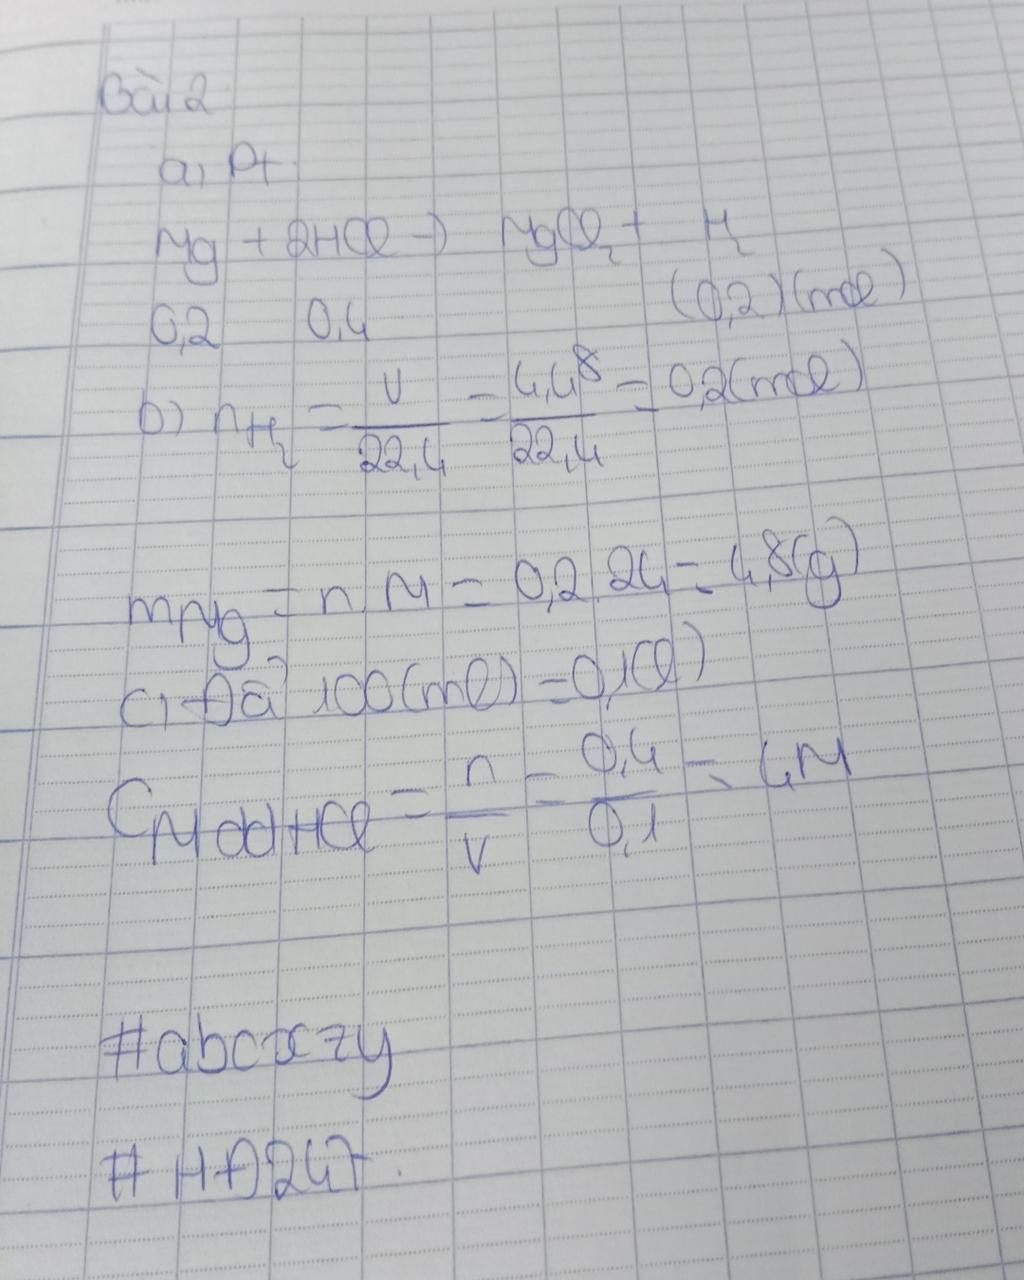 Bài 2
a, Pt
Mg + 2HCl → MgCl₂ + H₂
0,2 0,4 (0,2) (mol)
b) nH₂ = V/22,4 = 4,48/22,4 = 0,2(mol)
mMg = n.M = 0,2.24 = 4,8(g)
c, Đổi 100(ml) = 0,1(l)
CM dd HCl = n/V = 0,4/0,1 = 4M
#abcxzy
#HĐ247.